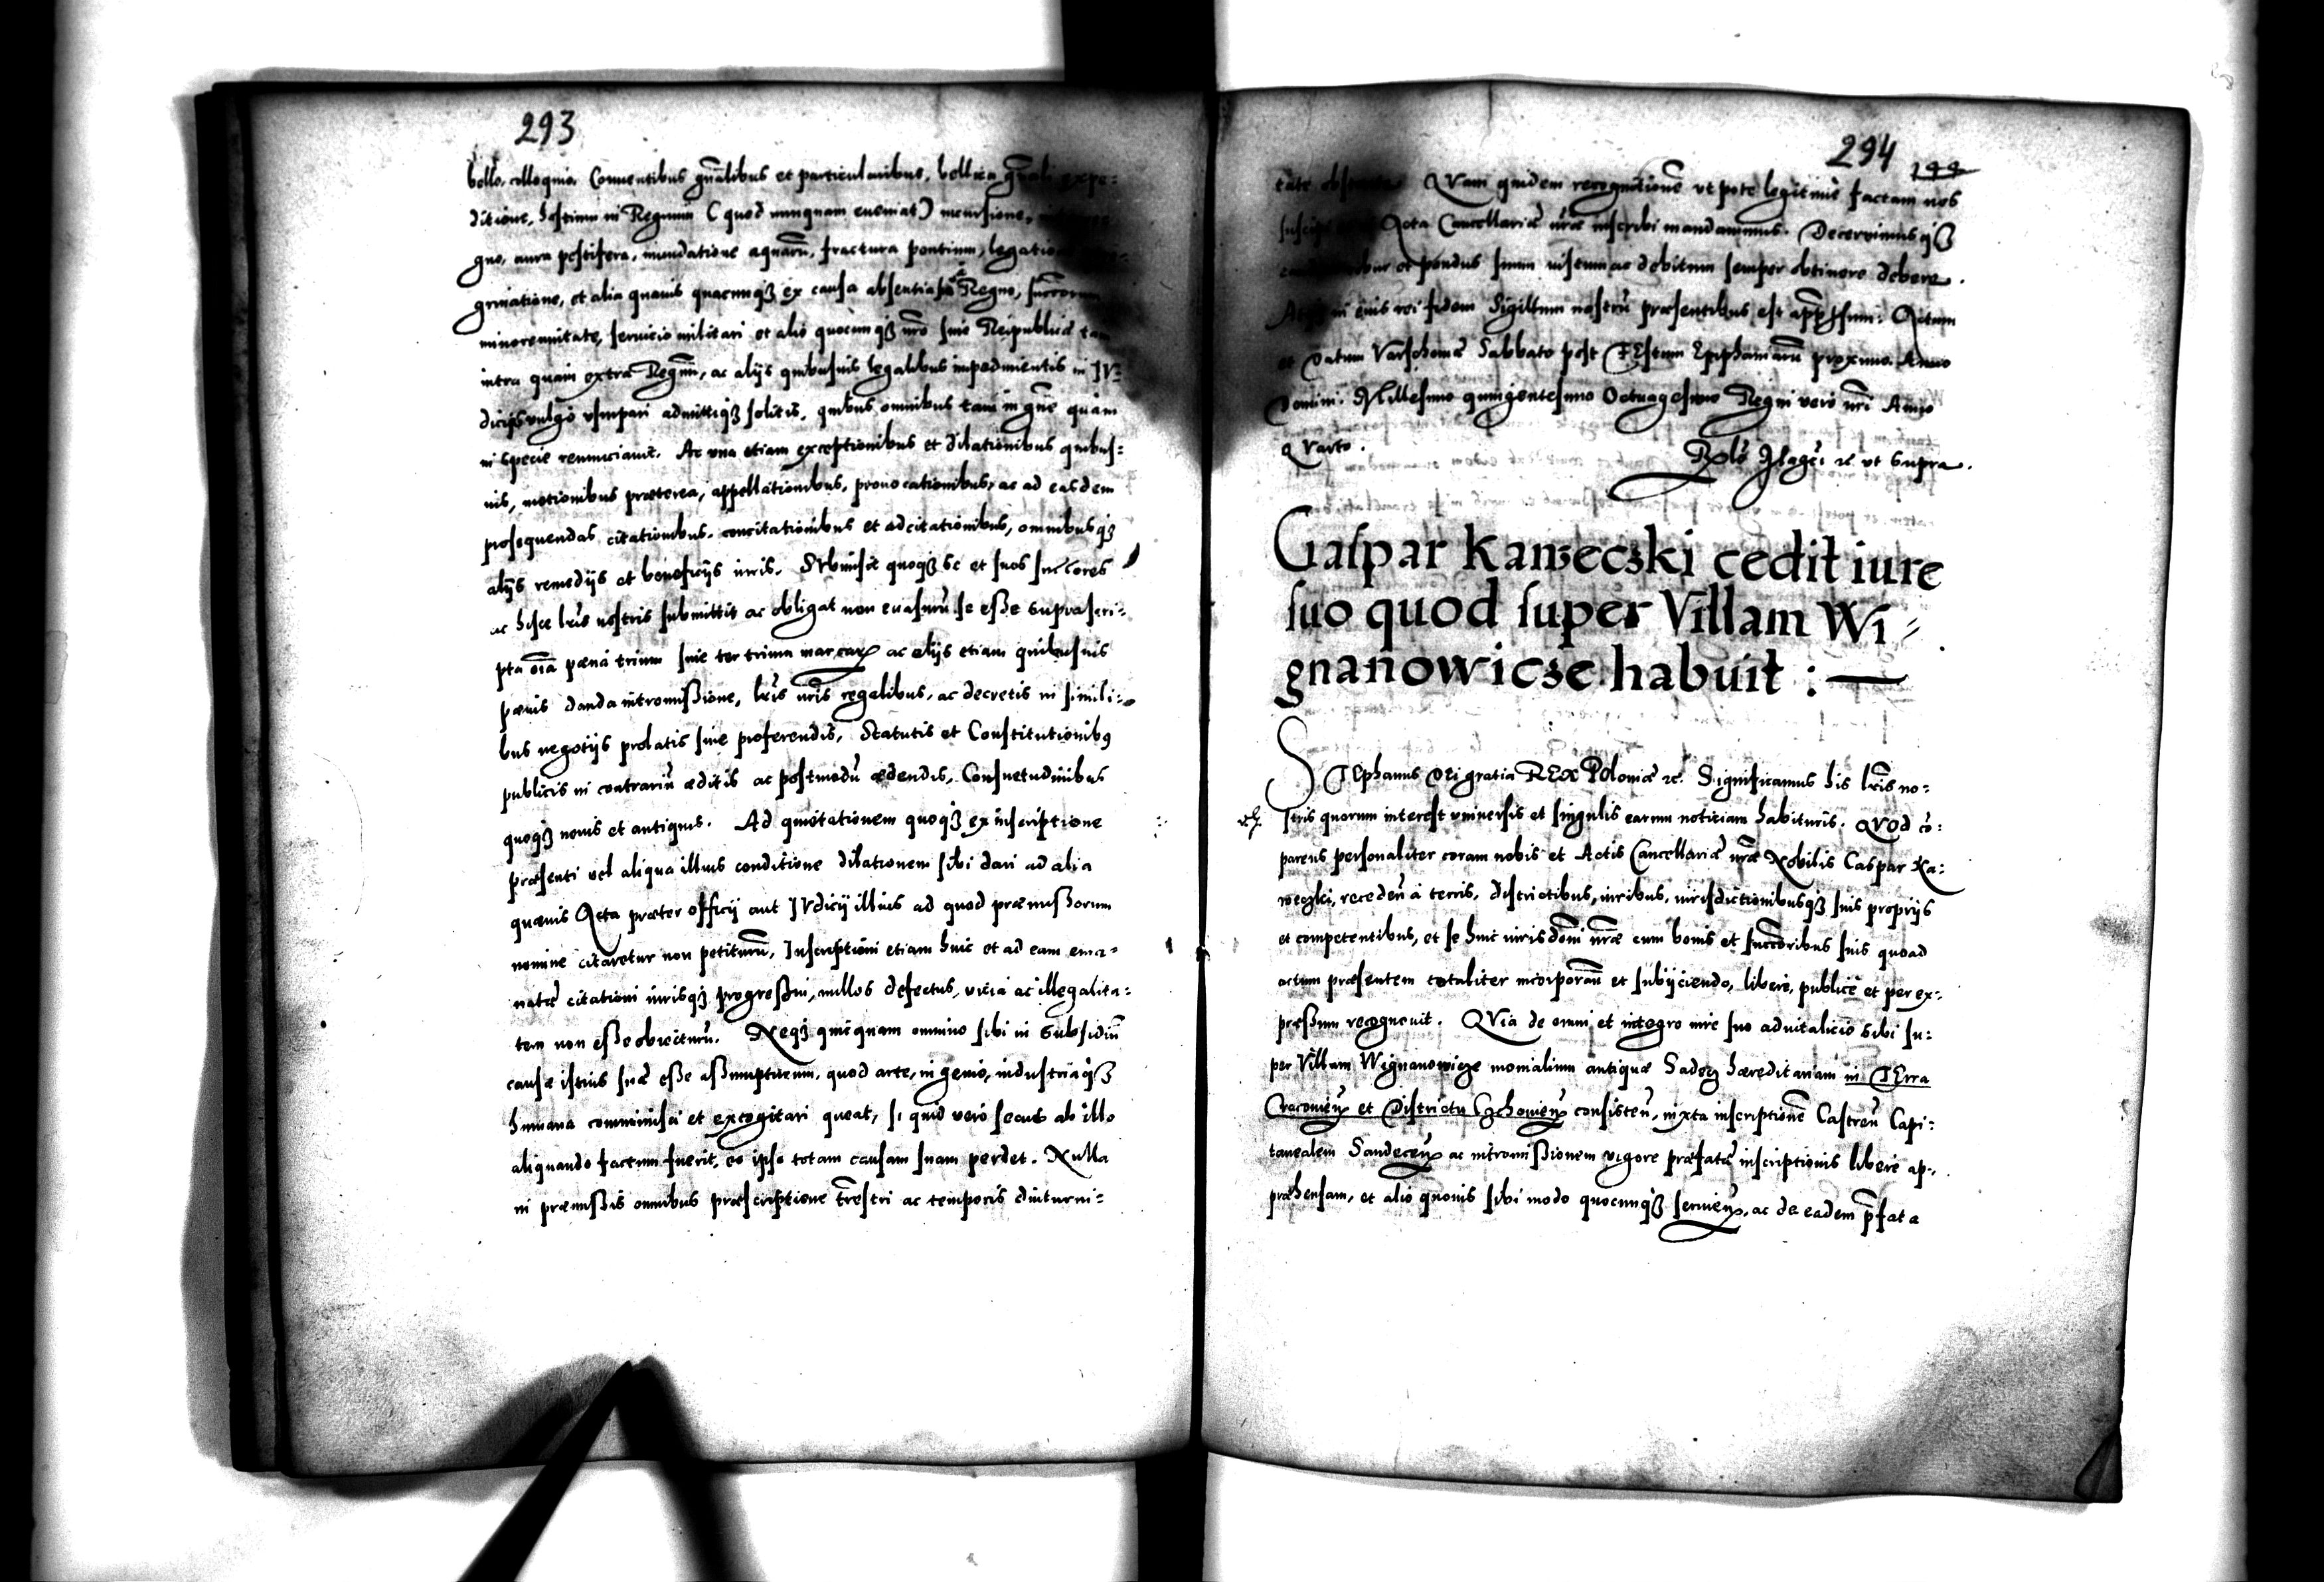 293
bello, colloquio, Conuentibus gnalibus et particularibus, bellica gnali expe:
ditione, hostium in Regnum (quod nunquam eueniat) incursione,
gno, aura pestifera, inundatione aquaru, fractura pontium, legatio
grinatione, et alia quauis quacunqȝ ex causa absentia a Regno, succorum
minorennitate, seruicio militari et alio quocunqȝ nro siue Reipublicæ tam
intra quam extra Regnu, ac alijs quibusuis legalibus impedimentis in IV:
dicijs vulgo vsurpari admittiqȝ solitis, quibus omnibus tam in gne quam
in specie renunciauit. Ac vna etiam exceptionibus et dilationibus quibus:
uis, motionibus præterea, appellationibus, prouocationibus, ac ad easdem
prosequendas citationibus, concitationibus et adcitationibus, omnibusqȝ
alijs remedijs et beneficijs iuris. quoqȝ se et suos succores
ac hisce lris nostris submittit ac obligat non euasuru se esse suprascri:
pta oia pæna trium siue ter trium marcarum ac alijs etiam quibusuis
pænis danda intromissione, lris nris regalibus, ac decretis in simili:
bus negotijs prolatis siue proferendis, Statutis et Constitutionibꝰ
publicis in contrariu æditis ac postmodu ædendis, Consuetudinibus
quoqȝ nouis et antiquis. Ad quietationem quoqȝ ex inscriptione
præsenti vel aliqua illius conditione dilationem sibi dari ad alia
quæuis Acta præter officij aut IVdicij illius ad quod præmissorum
nomine citaretur non petituru, Inscriptioni etiam huic et ad eam ema:
natæ citationi iurisqȝ progressui, nullos defectus, vicia ac illegalita:
tem non esse obiecturu. Neqȝ quicquam omnino sibi in subsidiu
causæ istius suæ esse assumpturum, quod arte, ingenio, industriaqȝ
humana comminisci et excogitari queat, si quid vero secus ab illo
aliquando factum fuerit, eo ipso totam causam suam perdet. Nulla
in præmissis omnibus præscriptione trestri ac temporis diuturni:
294
144
tate obstante. QVam quidem recognitione vt pote legitime factam nos
suscipi Acta Cancellariæ nræ inscribi mandauimus. Decernimusqȝ
robur et pondus suum iustum ac debitum semper obtinere debere.
Atqȝ in cuis rei fidem Sigillum nostru præsentibus est appssum. Actum
et Datum Varschouiæ Sabbato post FEstum Epiphaniaru proximo. Anno
Domini. Millesimo quingentesimo Octuagesimo Regni vero nri Anno
QVarto.
Rplς Jlagςi ꝛc vt supra.
Gaspar Kawecski cedit iure
suo quod super Villam Wi⸗
gnanowicze habuit :—
STEphanus Dei gratia REX POloniæ ꝛc. Significamus his lris no:
stris quorum interest vniuersis et singulis earum noticiam habituris. QVod co:
parens personaliter coram nobis et Actis Cancellariæ nræ Nobilis Caspar Ka:
weczki, receden a terris, districtibus, iuribus, iurisdictionibusqȝ suis proprijs
et competentibus, et se huic iurisdoni nræ cum bonis et succoribus suis quoad
actum præsentem totaliter incorporan et subijciendo, libere, publice et per ex:
pressum recognouit. QVia de omni et integro iure suo aduitalicio sibi su:
per Villam Wignanowicze monialium antiquæ Sadecz hæreditariam in TErra
Cracouien et Districtu Czchouien consisten, iuxta inscriptione Castren Capi:
tanealem Sandecen ac intromissionem vigore præfatæ inscriptionis libere ap:
præhensam, et alio quouis sibi modo quocunqȝ seruien, ac de eadem pfata